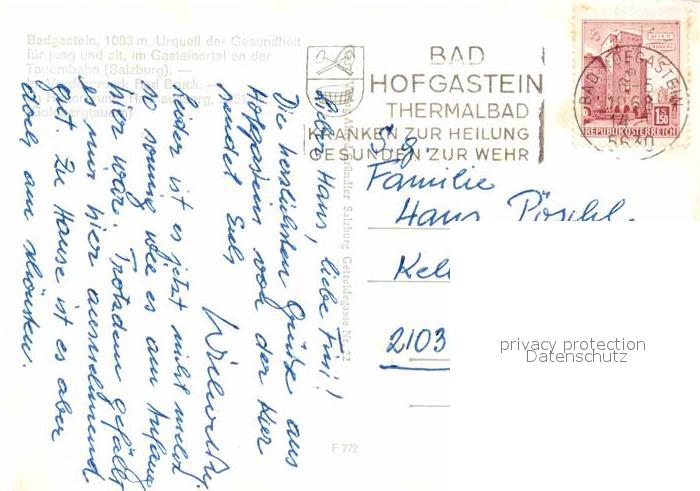 Badgastein, 1083 m, Urquell der Gesundheit
für jung und alt, im Gasteinertal an der
Tauernbahn (Salzburg). —
BAD
HOFGASTEIN
THERMALBAD
KRANKEN ZUR HEILUNG
GESUNDEN ZUR WEHR
BAD HOFGASTEIN
5630
1.50
REPUBLIK ÖSTERREICH
Salzburg Getreidegasse Nr. 22
F 772
Lieber Hans, liebe Fini!
Die herzlichsten Grüße aus
Hofgastein von der Kur
sendet Euch
Leider ist es jetzt nicht mehr
so sonnig wie es am Anfang
hier war. Trotzdem gefällt
es mir hier ausnehmend
gut. Zu Hause ist es aber
doch am schönsten.
Familie
Hans Pöschl
2103
privacy protection
Datenschutz